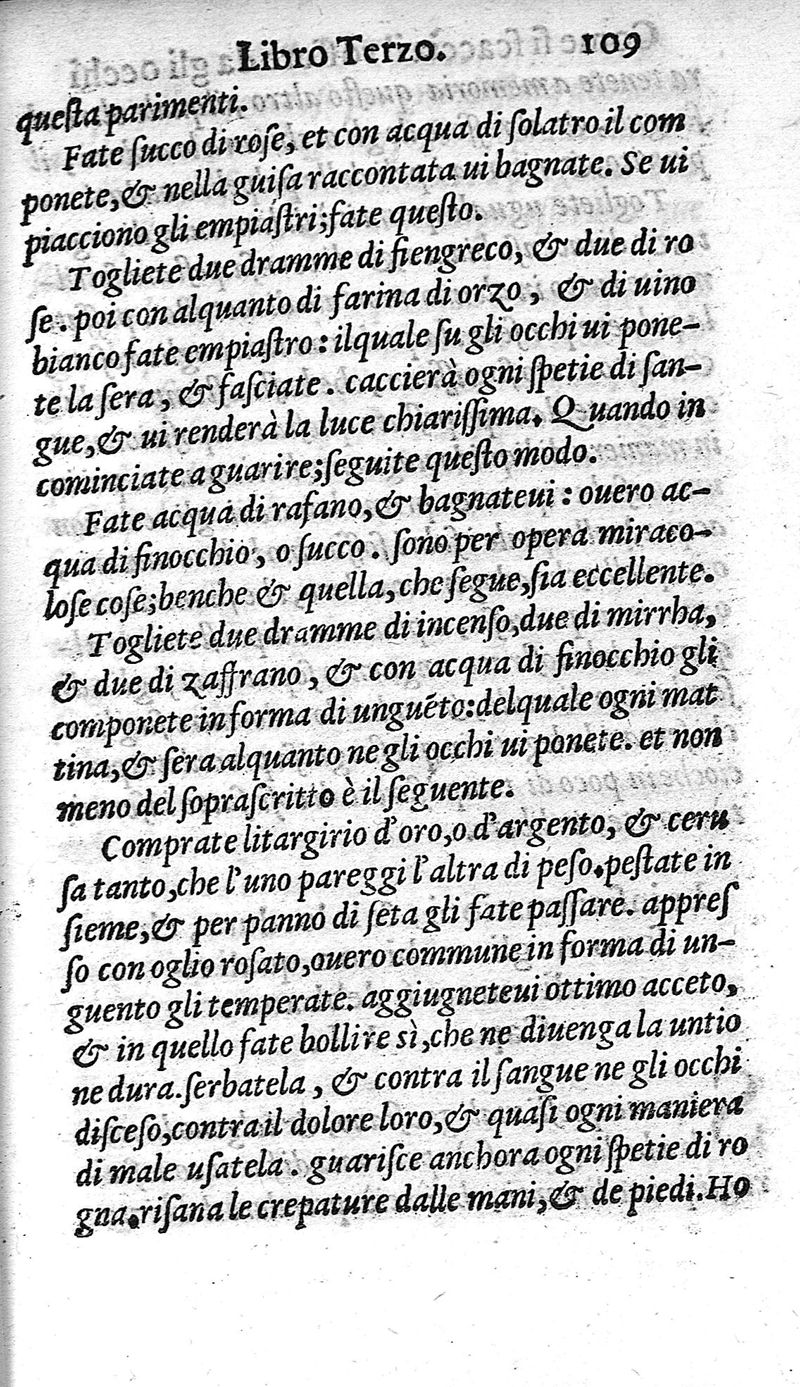 Libro Terzo. 109
queſta parimenti.
Fate ſucco di roſe, et con acqua di ſolatro il com
ponete, & nella guiſa raccontata ui bagnate. Se ui
piacciono gli empiaſtri; fate queſto.
Togliete due dramme di fiengreco, & due di ro
ſe. poi con alquanto di farina di orzo, & di uino
bianco fate empiaſtro: ilquale ſu gli occhi ui pone-
te la ſera, & faſciate. caccierà ogni ſpetie di ſan-
gue, & ui renderà la luce chiariſſima. Quando in
cominciate a guarire; ſeguite queſto modo.
Fate acqua di rafano, & bagnateui: ouero ac-
qua di finocchio, o ſucco. ſono per opera miraco-
loſe coſe; benche & quella, che ſegue, ſia eccellente.
Togliete due dramme di incenſo, due di mirrha,
& due di zaffrano, & con acqua di finocchio gli
componete in forma di unguẽto: delquale ogni mat
tina, & ſera alquanto ne gli occhi ui ponete. et non
meno del ſopraſcritto è il ſeguente.
Comprate litargirio d'oro, o d'argento, & ceru
ſa tanto, che l'uno pareggi l'altra di peſo. peſtate in
ſieme, & per panno di ſeta gli fate paſſare. appreſ
ſo con oglio roſato, ouero commune in forma di un-
guento gli temperate. aggiugneteui ottimo acceto,
& in quello fate bollire sì, che ne diuenga la untio
ne dura. ſerbatela, & contra il ſangue ne gli occhi
diſceſo, contra il dolore loro, & quaſi ogni maniera
di male uſatela. guariſce anchora ogni ſpetie di ro
gna. riſana le crepature dalle mani, & de piedi. Ho